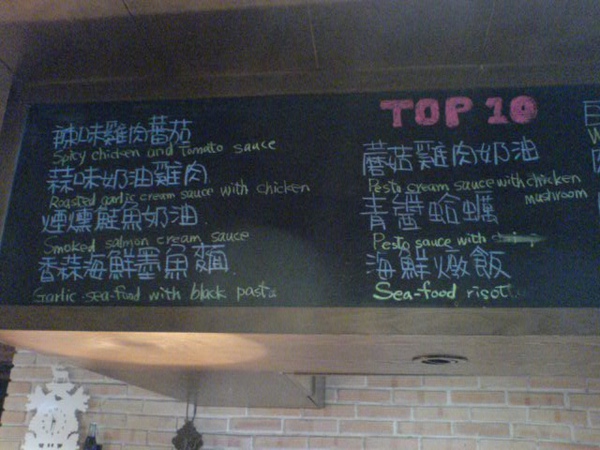 辣味雞肉蕃茄
Spicy chicken and Tomato sauce
蒜味奶油雞肉
Roasted garlic cream sauce with chicken
煙燻鮭魚奶油
Smoked salmon cream sauce
香蒜海鮮墨魚麵
Garlic sea-food with black pasta
TOP 10
蘑菇雞肉奶油
Pesto cream sauce with chicken
mushroom
青醬蛤蠣
Pesto sauce with
海鮮燉飯
Sea-food risotto